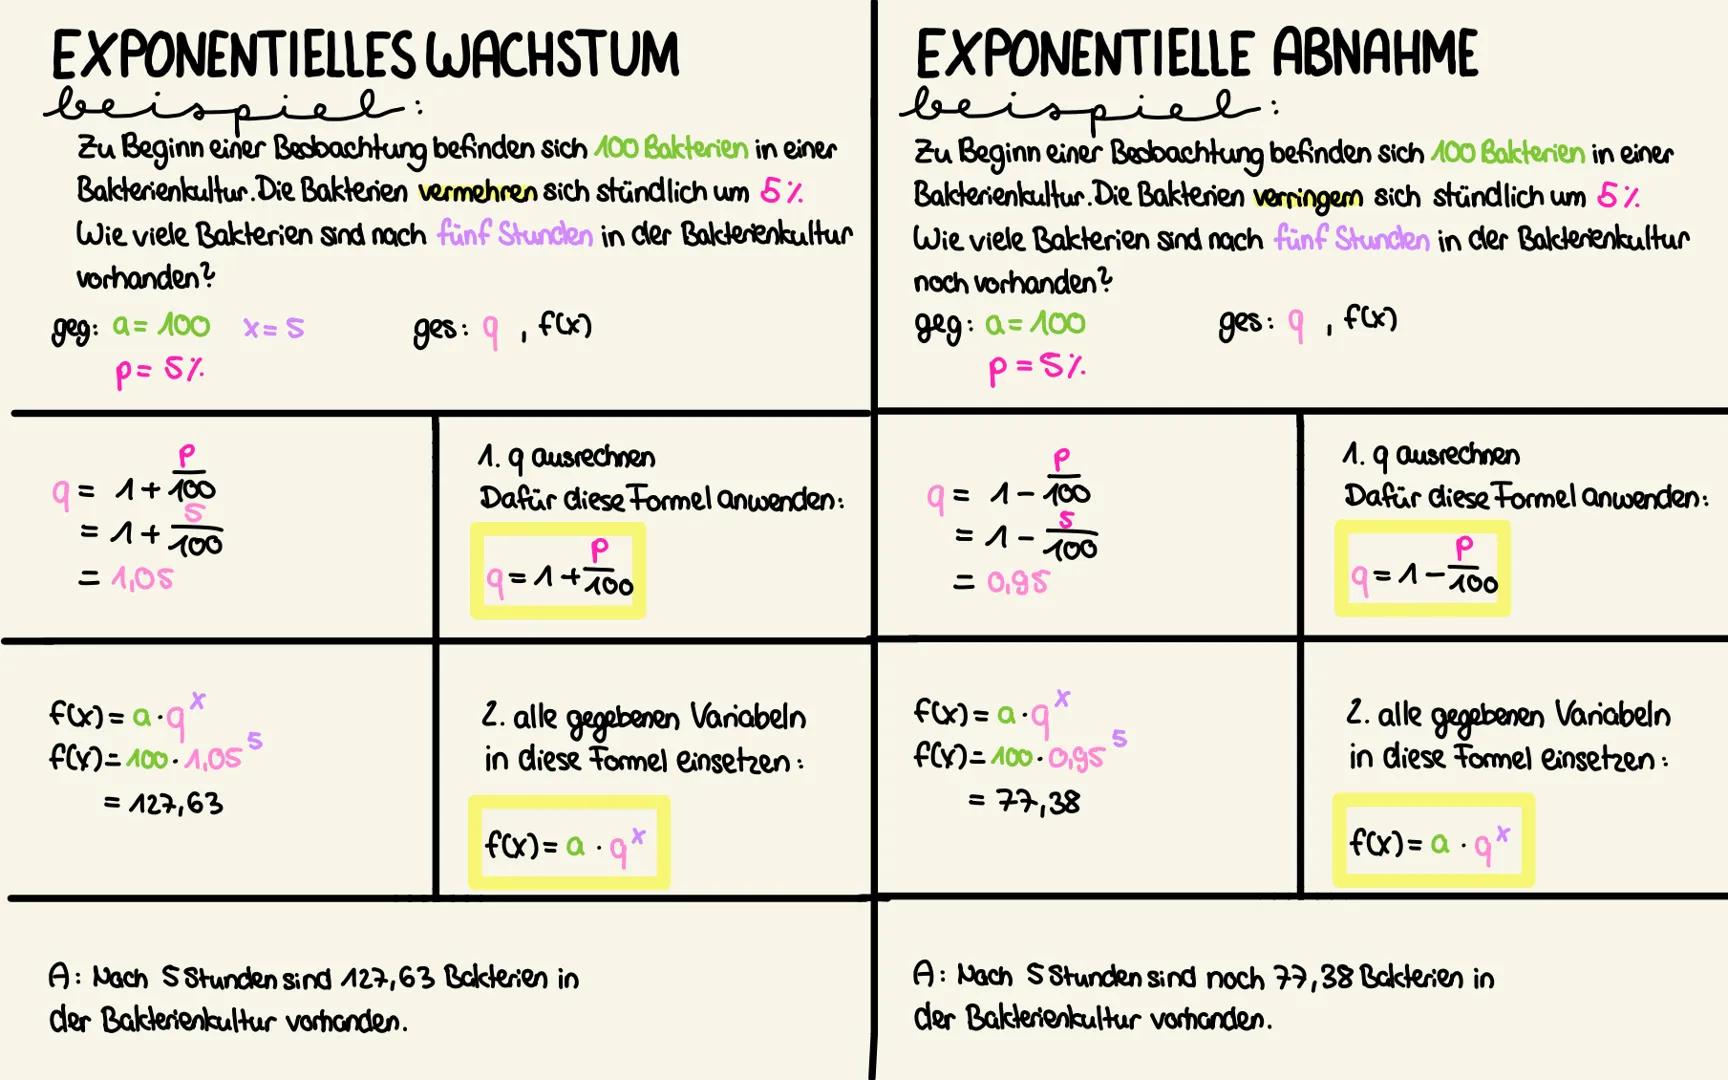 EXPONENTIELLES WACHSTUM
beispiel:
Zu Beginn einer Beobachtung befinden sich 100 Bakterien in einer
Bakterienkultur. Die Bakterien vermehren sich stündlich um 5%
Wie viele Bakterien sind nach fünf Stunden in der Bakterienkultur
vorhanden?
geg: a = 100 x = 5 ges: q , f(x)
p = 5%
q = 1 + p/100
= 1 + 5/100
= 1,05
1. q ausrechnen
Dafür diese Formel anwenden:
q = 1 + p/100
f(x) = a · q^x
f(x) = 100 · 1,05^5
= 127,63
2. alle gegebenen Variabeln
in diese Formel einsetzen:
f(x) = a · q^x
A: Nach 5 Stunden sind 127,63 Bakterien in
der Bakterienkultur vorhanden.
EXPONENTIELLE ABNAHME
beispiel:
Zu Beginn einer Beobachtung befinden sich 100 Bakterien in einer
Bakterienkultur. Die Bakterien verringern sich stündlich um 5%
Wie viele Bakterien sind nach fünf Stunden in der Bakterienkultur
noch vorhanden?
geg: a = 100 ges: q , f(x)
p = 5%
q = 1 - p/100
= 1 - 5/100
= 0,95
1. q ausrechnen
Dafür diese Formel anwenden:
q = 1 - p/100
f(x) = a · q^x
f(x) = 100 · 0,95^5
= 77,38
2. alle gegebenen Variabeln
in diese Formel einsetzen:
f(x) = a · q^x
A: Nach 5 Stunden sind noch 77,38 Bakterien in
der Bakterienkultur vorhanden.